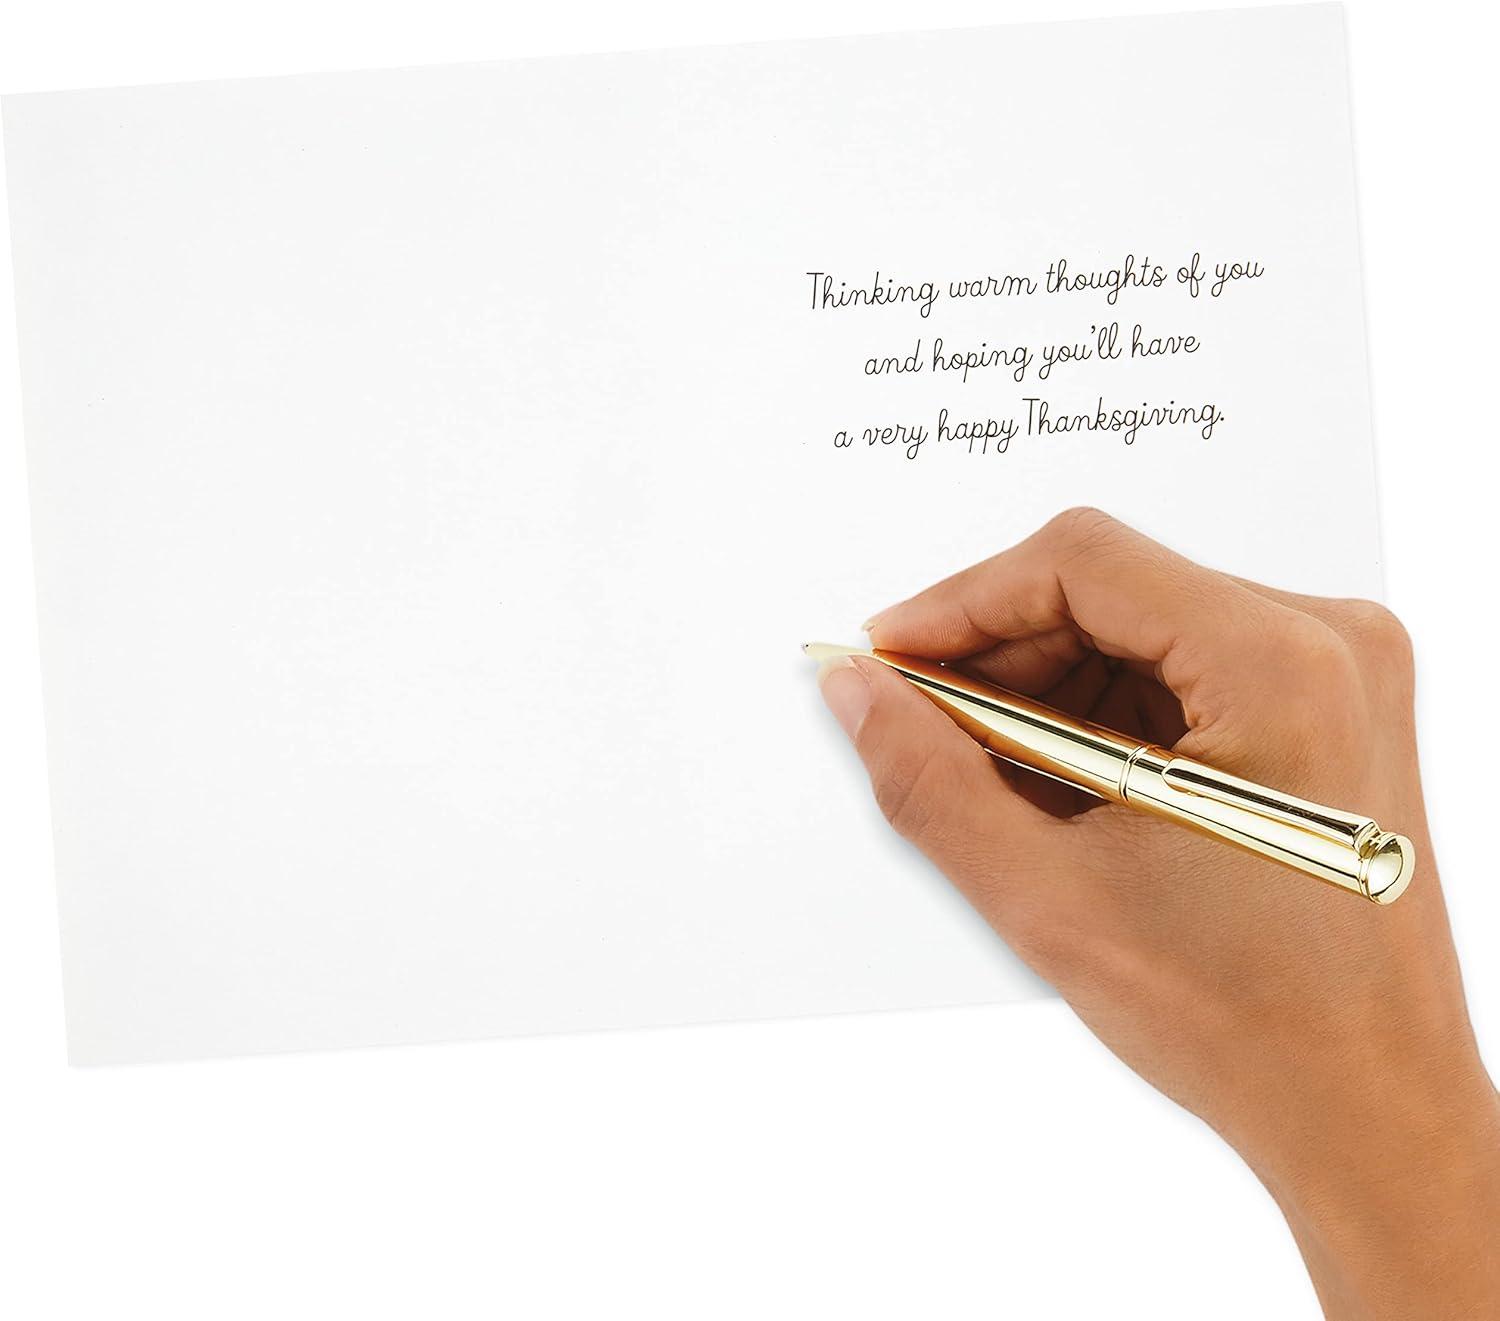 Thinking warm thoughts of you
and hoping you'll have
a very happy Thanksgiving.